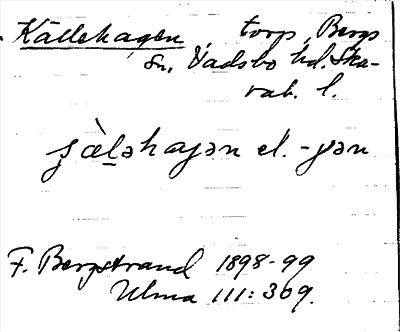 Källehagen torp, Bergs
sn, Vadsbo hd. Ska-
rab. l.
ʂæ̀l̠əhaɡən el. -ɣən
F. Bergstrand 1898-99
Ulma 111:309.